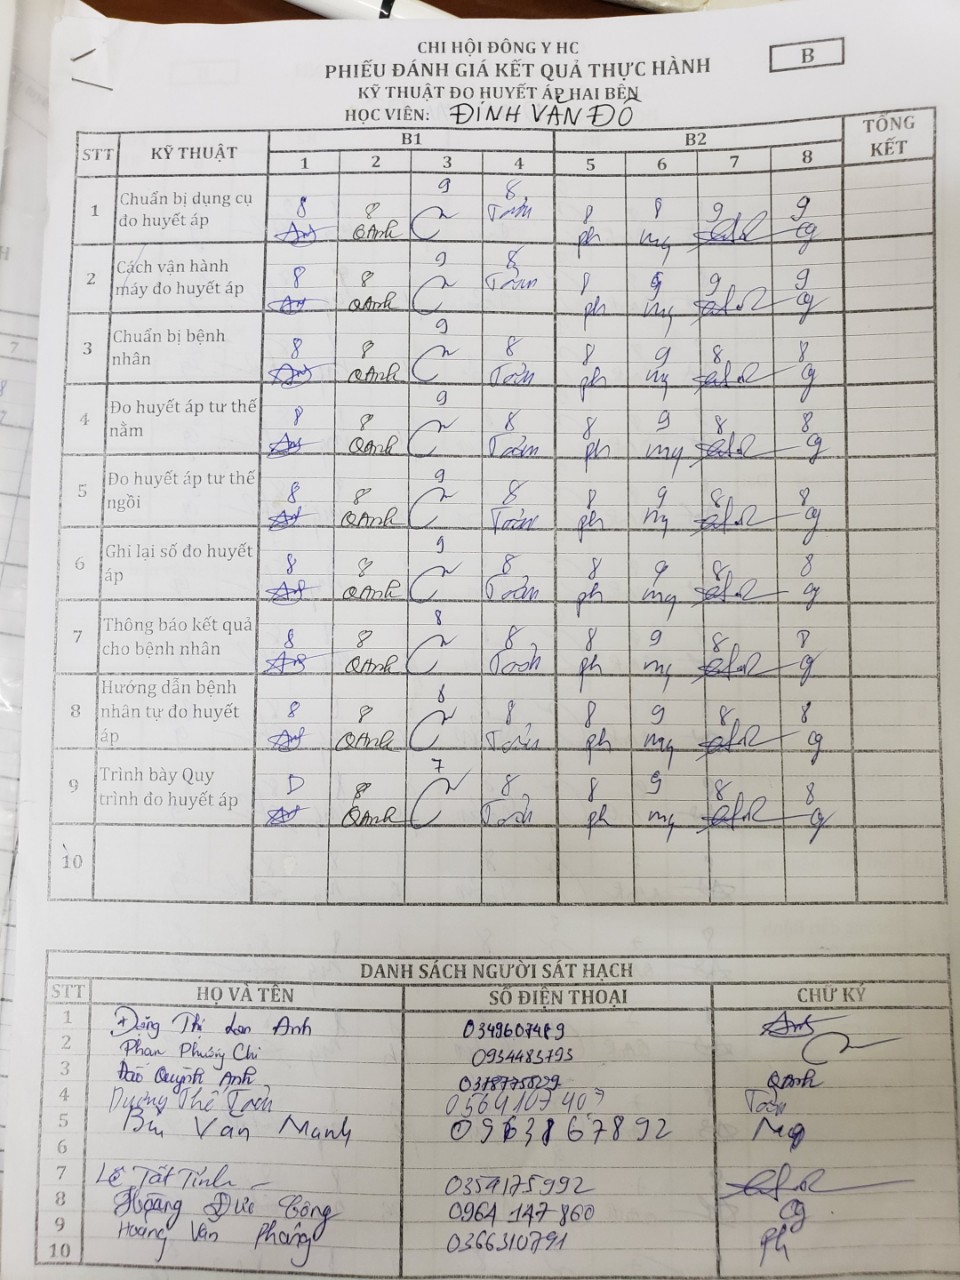 CHI HỘI ĐÔNG Y HC
B
PHIẾU ĐÁNH GIÁ KẾT QUẢ THỰC HÀNH
KỸ THUẬT ĐO HUYẾT ÁP HAI BÊN
HỌC VIÊN: ĐINH VĂN ĐÔ
STT KỸ THUẬT B1 B2 TỔNG KẾT
1 2 3 4 5 6 7 8
1 Chuẩn bị dụng cụ đo huyết áp 8 8 9 8 8 8 9 9
QAnh Toản ph mq cg
2 Cách vận hành máy đo huyết áp 8 8 9 8 8 9 9 9
QAnh Toản ph mq cg
3 Chuẩn bị bệnh nhân 8 8 9 8 8 9 8 8
QAnh Toản ph mq cg
4 Đo huyết áp tư thế nằm 8 8 9 8 8 9 8 8
QAnh Toản ph mq cg
5 Đo huyết áp tư thế ngồi 8 8 9 8 8 9 8 8
QAnh Toản ph mq cg
6 Ghi lại số đo huyết áp 8 8 9 8 8 9 8 8
QAnh Toản ph mq cg
7 Thông báo kết quả cho bệnh nhân 8 8 8 8 8 9 8 8
QAnh Toản ph mq cg
8 Hướng dẫn bệnh nhân tự đo huyết áp 8 8 8 8 8 9 8 8
QAnh Toản ph mq cg
9 Trình bày Quy trình đo huyết áp D 8 7 8 8 9 8 8
QAnh Toản ph mq cg
10
DANH SÁCH NGƯỜI SÁT HẠCH
STT HỌ VÀ TÊN SỐ ĐIỆN THOẠI CHỮ KÝ
1 Thị Lan Anh 0349607489
2 Phan Phương Chi 0934483793
3 Đào Quỳnh Anh QAnh
4 Dương Thế Toản 0564107407 Toản
5 Văn Mạnh 0963867892 Mq
6
7 Lê Tất Tính 0354175992
8 Hoàng Đức Công 0964 147 860 cg
9 Hoàng Văn Phóng 0366310791 Ph
10